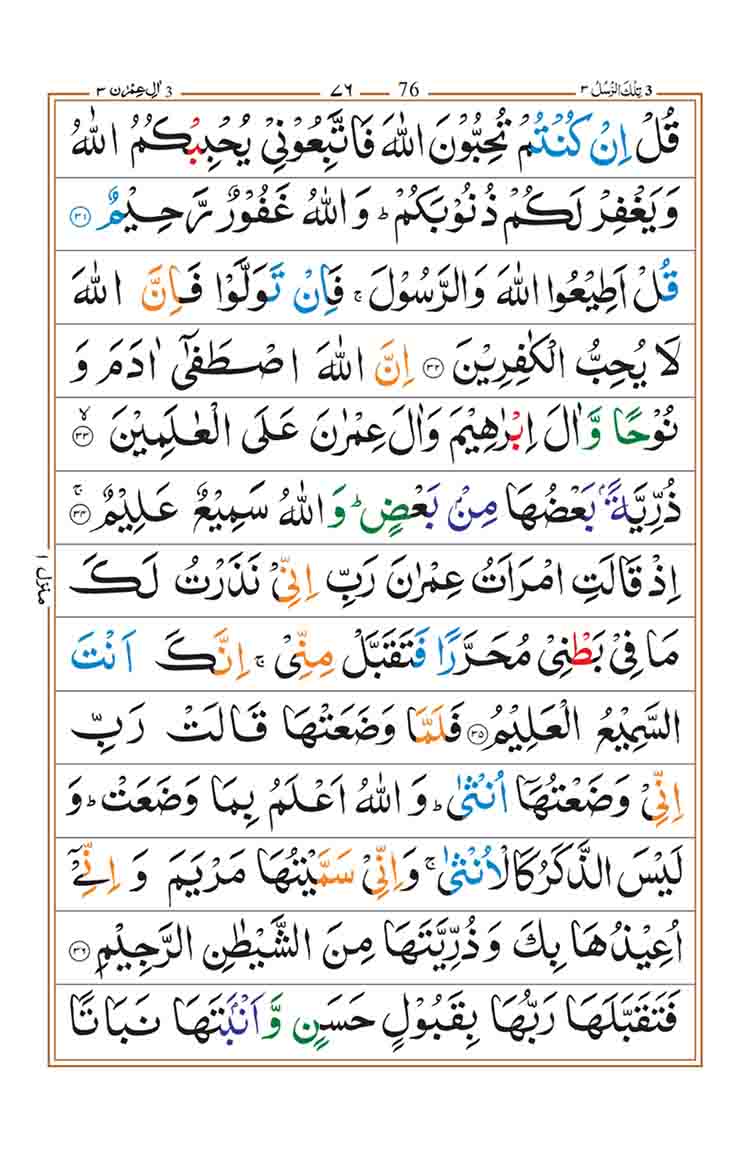 3 تِلْكَ الرُّسُلُ ٣ 76 ٧٦ 3 اٰلِ عِمْرٰن ٣
قُلْ اِنْ كُنْتُمْ تُحِبُّوْنَ اللّٰهَ فَاتَّبِعُوْنِيْ يُحْبِبْكُمُ اللّٰهُ
وَيَغْفِرْ لَكُمْ ذُنُوْبَكُمْ ؕ وَاللّٰهُ غَفُوْرٌ رَّحِيْمٌ ۝٣١
قُلْ اَطِيْعُوا اللّٰهَ وَالرَّسُوْلَ ۚ فَاِنْ تَوَلَّوْا فَاِنَّ اللّٰهَ
لَا يُحِبُّ الْكٰفِرِيْنَ ۝٣٢ اِنَّ اللّٰهَ اصْطَفٰۤى اٰدَمَ وَ
نُوْحًا وَّاٰلَ اِبْرٰهِيْمَ وَاٰلَ عِمْرٰنَ عَلَى الْعٰلَمِيْنَ ۙ۝٣٣
ذُرِّيَّةًۢ بَعْضُهَا مِنْۢ بَعْضٍ ؕ وَاللّٰهُ سَمِيْعٌ عَلِيْمٌ ۚ۝٣٤
اِذْ قَالَتِ امْرَاَتُ عِمْرٰنَ رَبِّ اِنِّيْ نَذَرْتُ لَكَ
مَا فِيْ بَطْنِيْ مُحَرَّرًا فَتَقَبَّلْ مِنِّيْ ۚ اِنَّكَ اَنْتَ
السَّمِيْعُ الْعَلِيْمُ ۝٣٥ فَلَمَّا وَضَعَتْهَا قَالَتْ رَبِّ
اِنِّيْ وَضَعْتُهَاۤ اُنْثٰى ؕ وَاللّٰهُ اَعْلَمُ بِمَا وَضَعَتْ ؕ وَ
لَيْسَ الذَّكَرُ كَالْاُنْثٰى ۚ وَاِنِّيْ سَمَّيْتُهَا مَرْيَمَ وَ اِنِّيْۤ
اُعِيْذُهَا بِكَ وَذُرِّيَّتَهَا مِنَ الشَّيْطٰنِ الرَّجِيْمِ ۝٣٦
فَتَقَبَّلَهَا رَبُّهَا بِقَبُوْلٍ حَسَنٍ وَّاَنْۢبَتَهَا نَبَاتًا
منزل ١